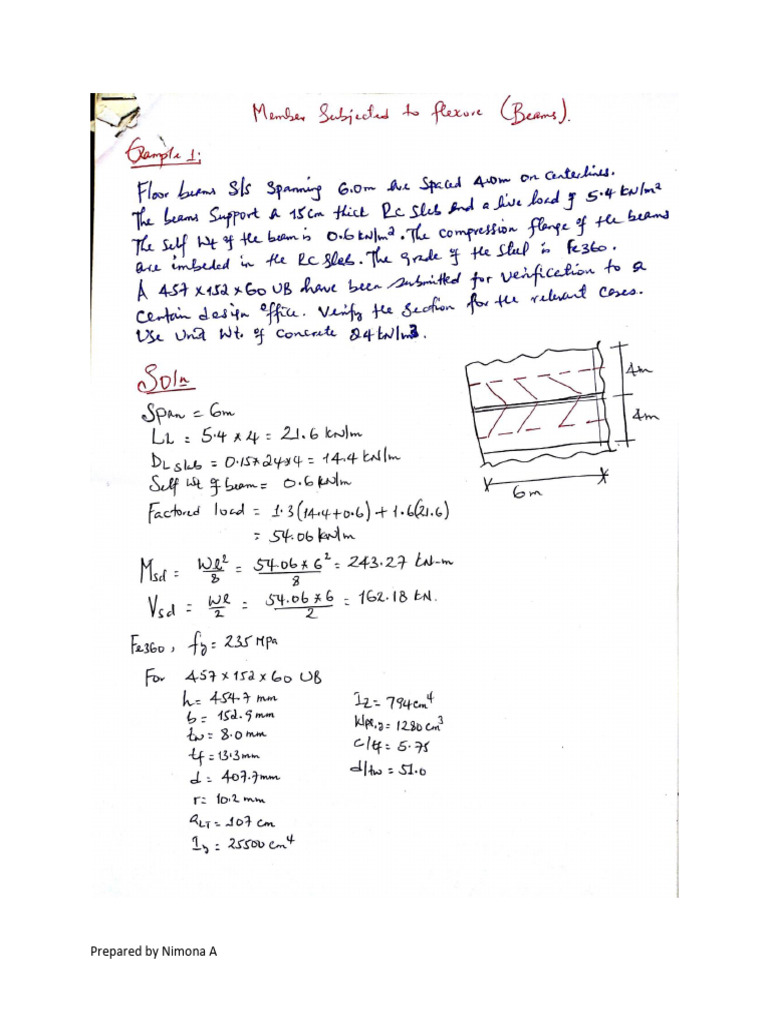 Member Subjected to flexure (Beams).
Example 1:
Floor beams S/S Spanning 6.0m are spaced 4.0m on centerlines.
The beams Support a 15cm thick RC Slab and a live load of 5.4 kN/m²
The self wt of the beam is 0.6 kN/m². The compression flange of the beams
are imbeded in the RC Slab. The grade of the steel is Fe360.
A 457×152×60 UB have been submitted for verification to a
certain design office. Verify the section for the relevant cases.
Use Unit Wt. of concrete 24 kN/m³.
Soln
Span = 6m
LL = 5.4 * 4 = 21.6 kN/m
DL slab = 0.15*24*4 = 14.4 kN/m
Self wt of beam = 0.6 kN/m
Factored load = 1.3(14.4+0.6)+1.6(21.6)
= 54.06 kN/m
4m
4m
6m
Msd = Wl²/8 = 54.06*6²/8 = 243.27 kN-m
Vsd = Wl/2 = 54.06*6/2 = 162.18 kN.
Fe360, fy = 235 MPa
For 457×152×60 UB
h = 454.7 mm
b = 152.9 mm
tw = 8.0 mm
tf = 13.3 mm
d = 407.7 mm
r = 10.2 mm
aLT = 107 cm
Iy = 25500 cm⁴
Iz = 794 cm⁴
Wpl,y = 1280 cm³
c/tf = 5.75
d/tw = 51.0
Prepared by Nimona A